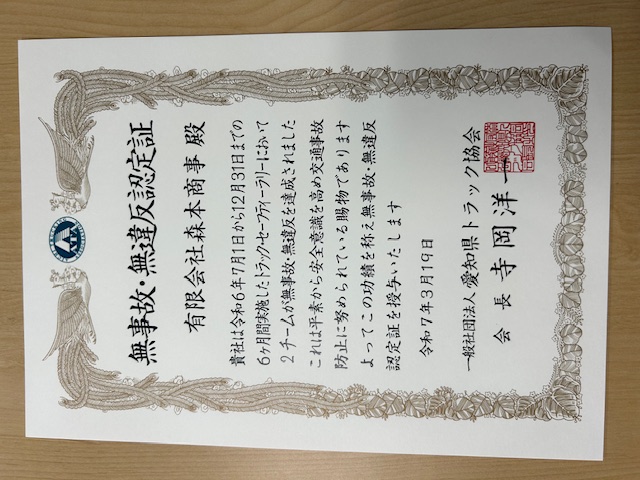 無事故・無違反認定証
有限会社森本商事 殿
貴社は令和6年7月1日から12月31日までの
6ヶ月間実施したトラック・セーフティーラリーにおいて
2チームが無事故・無違反を達成されました
これは平素から安全意識を高め交通事故
防止に努められている賜物であります
よってこの功績を称え無事故・無違反
認定証を授与いたします
令和7年3月19日
一般社団法人 愛知県トラック協会
会長 寺岡洋一